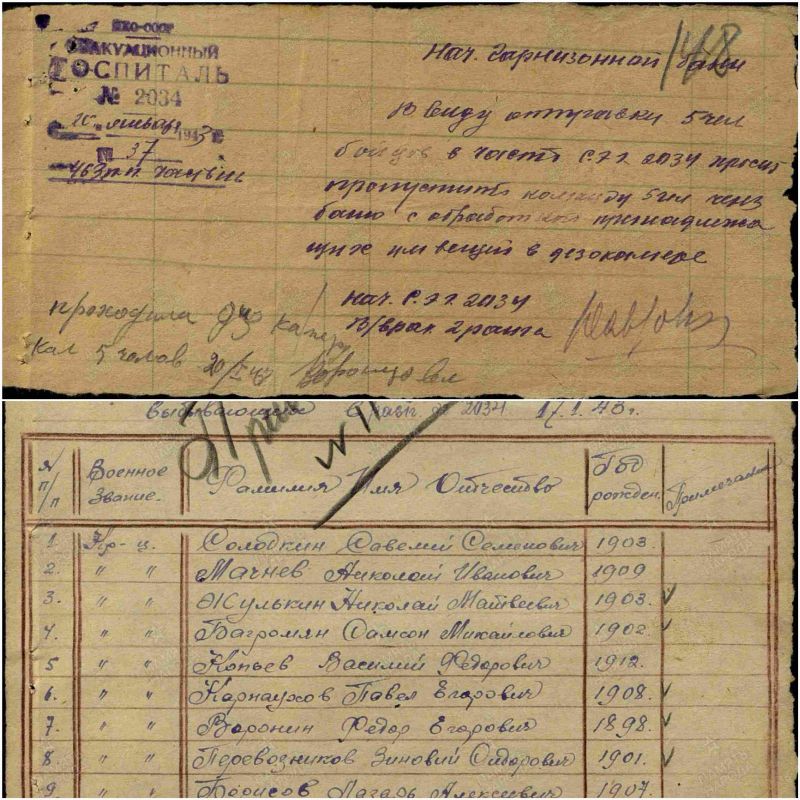 НКО-СССР
ЭВАКУАЦИОННЫЙ
ГОСПИТАЛЬ
№ 2034
20 января 1943 г.
37
Нач. Гарнизонной бани
148
В виду отправки 5 чел
бойцов в часть С.Э.Г. 2034 просит
пропустить команду 5 чел через
баню с обработкой принадлежа
щих им вещей в дезокамере
Нач. С.Э.Г. 2034
В/врач 2 ранга
проходила
5 20/I 43
выбывающих 2034 17.1.43 г.
№ п/п Военное Звание. Фамилия Имя Отчество Год рожден. Примечание
1. Кр-ц. Солодкин Савелий Семенович 1903.
2. " " Мачнев Николай Иванович 1909
3. " " Жулькин Николай Матвеевич 1903. v
4. " " Багромян Самсон Микайлович 1902. v
5 " " Копьев Василий Федорович 1912.
6. " " Карнаухов Павел Егорович 1908. v
7. " " Воронин Федор Егорович 1898. v
8 " " Перевозников Зиновий Сидорович 1901. v
9 " " Борисов Лазарь Алексеевич 1907.